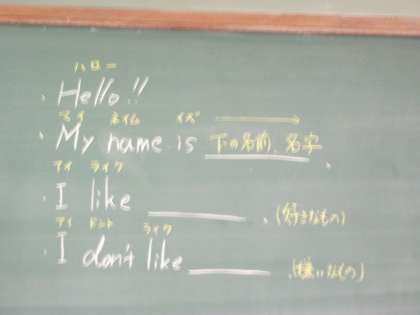 ハロー
Hello!!
マイ ネイム イズ
My name is 下の名前、名字.
アイ ライク
I like ______. (好きなもの)
アイ ドント ライク
I don't like ______. (嫌いなもの)